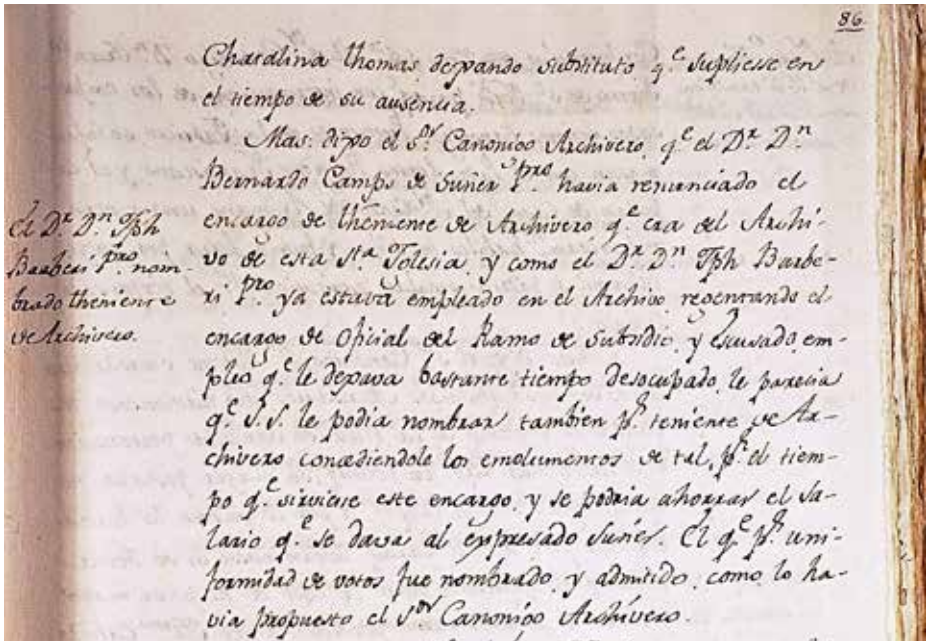 86
Chatalina Thomas dexando substituto q.e supliesse en
el tiempo de su ausencia.
Mas: dixo el S.or Canonigo Archivero, q.e el D.r D.n
Bernardo Camps de Suñer Pro. havia renunciado el
encargo de theniente de Archivero q.e era del Archi-
vo de esta S.ta Iglesia, y como el D.r D.n Jph Barbe-
ri Pro. ya estava empleado en el Archivo regentando el
encargo de Oficial del Ramo de Subsidio, y Escusado, em-
pleo q.e le dexava bastante tiempo desocupado, le parecia
q.e S.S. le podia nombrar tambien p.r teniente de Ar-
chivero concediendole los emolumentos de tal, p.r el tiem-
po q.e sirviese este encargo, y se podria ahorrar el Sa-
lario q.e se dava al expresado Suñer. El q.e p.r uni-
formidad de votos fue nombrado, y admitido, como lo ha-
via propuesto el S.or Canonigo Archivero.
El D.r D.n Jph
Barberi Pro. nom-
brado theniente
de Archivero.